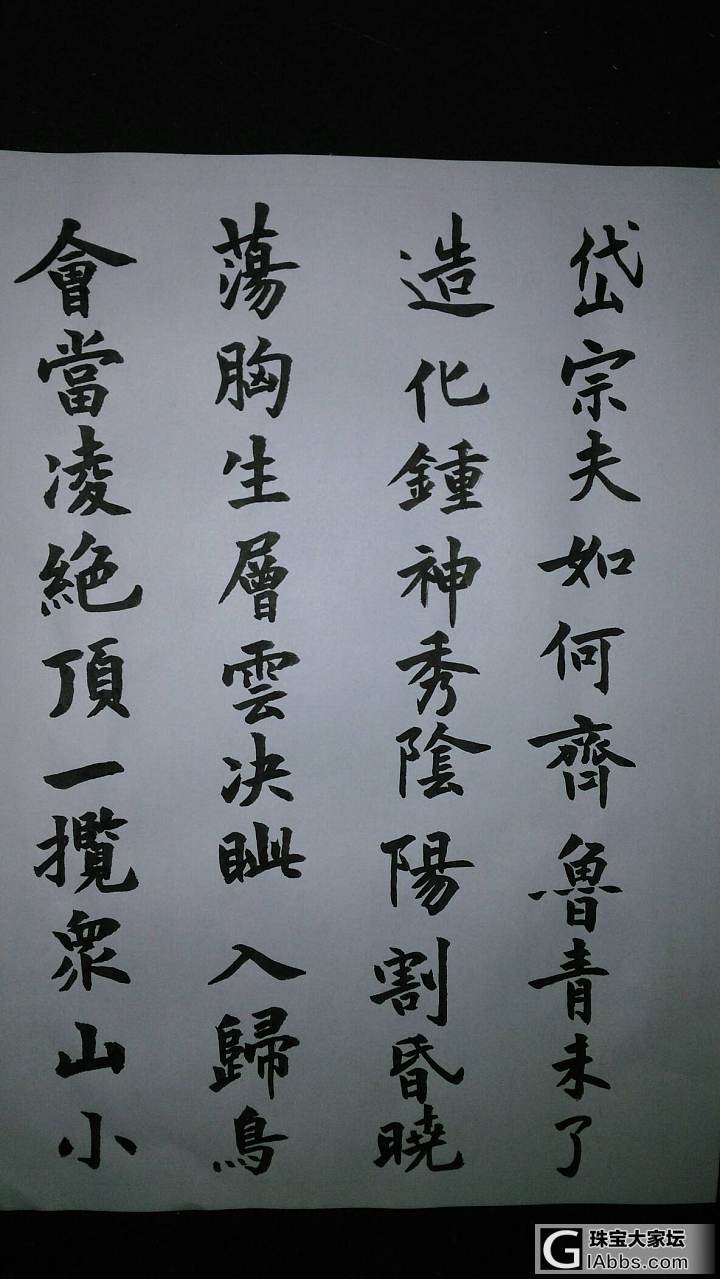 岱宗夫如何齊魯青未了
造化鍾神秀陰陽割昏曉
蕩胸生層雲決眦入歸鳥
會當凌絕頂一攬衆山小
珠宝大家坛
GIAbbs.com